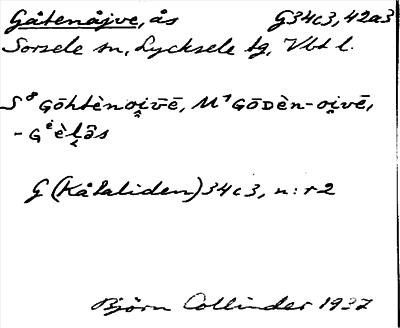 Gåtenåjve, ås G34c3, 42a3
Sorsele sn, Lycksele tg, Vbt l.
S⁸ Gōhtènoi̭vē, M⁷ Gōdèn-oi̭vē,
G (Kåtaliden) 34c3, n:r 2
Björn Collinder 1937